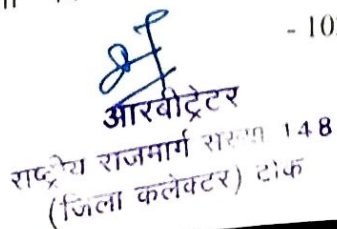 - 10
आरबीट्रेटर
राष्ट्रीय राजमार्ग संख्या 148
(जिला कलेक्टर) टोंक